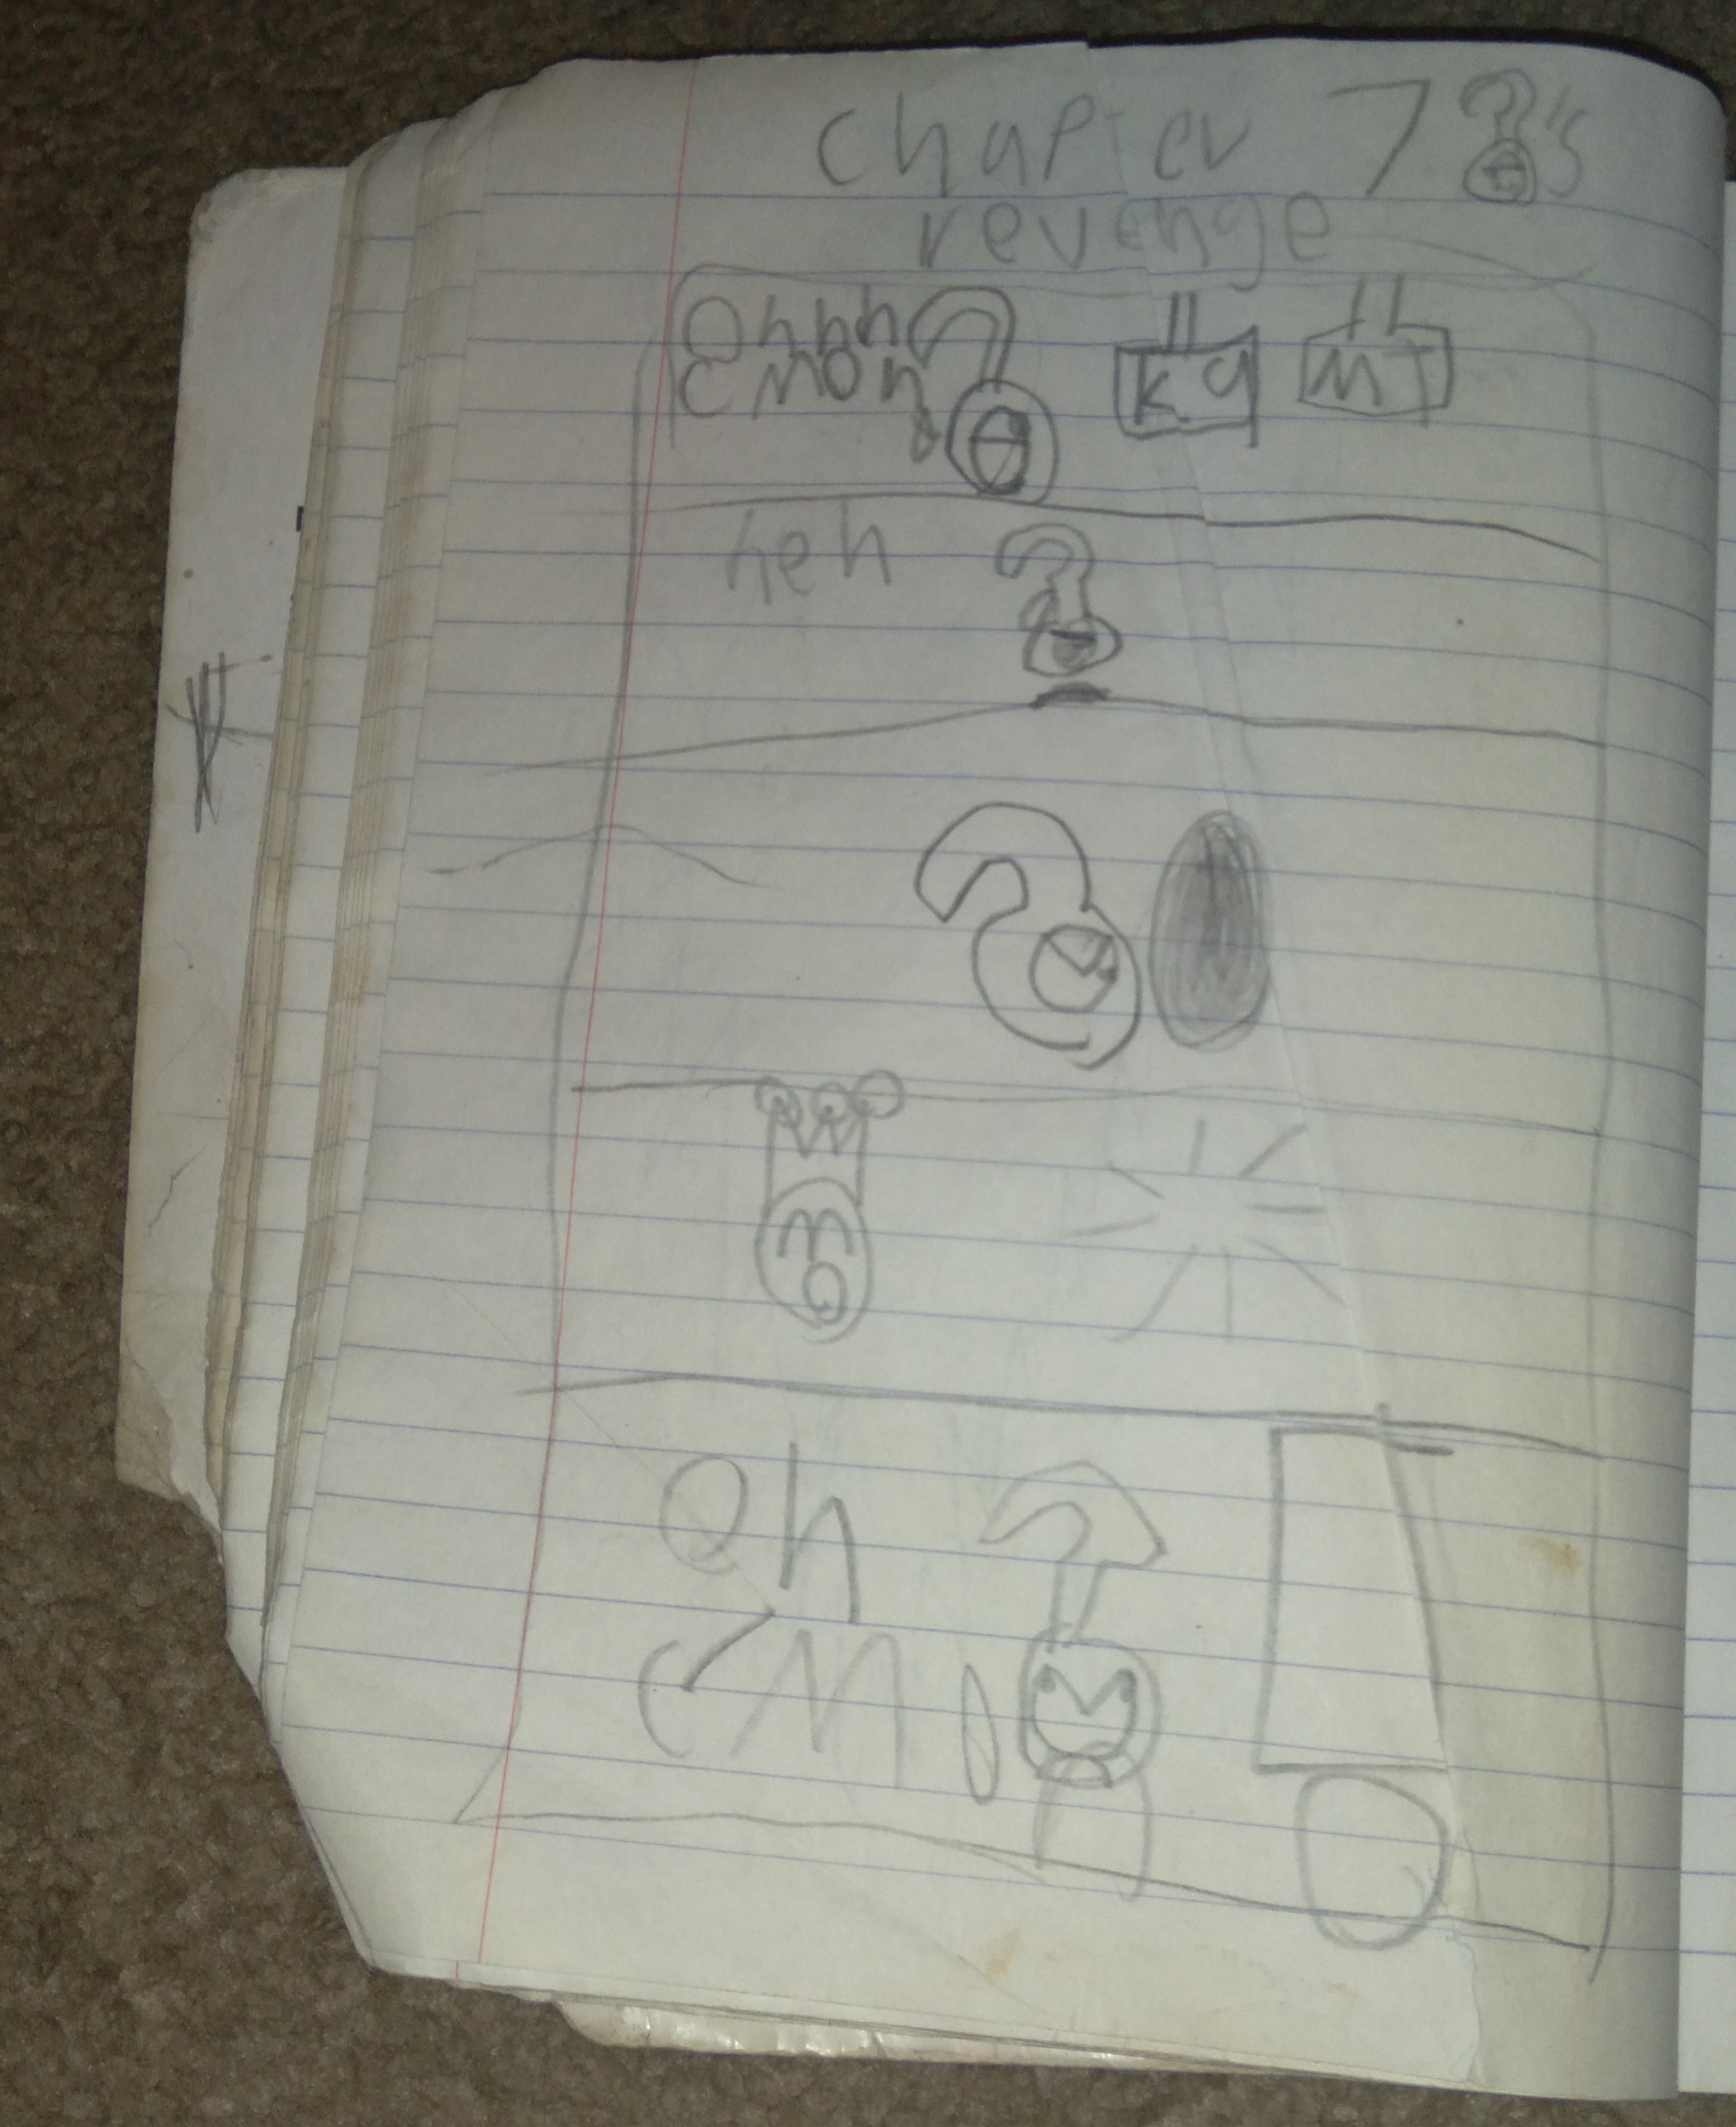 chapter 7 ?'s
revenge
Ohhh
CMON
K.G
MT
heh
Oh